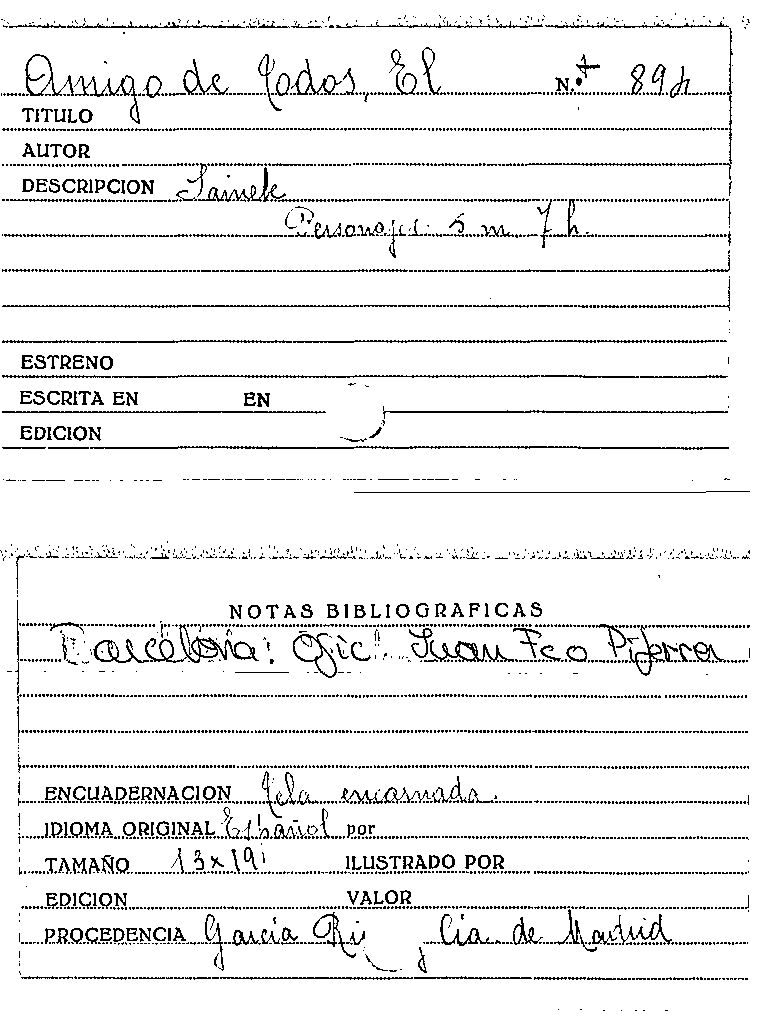 Amigo de Todos, El N.º 894
TITULO
AUTOR
DESCRIPCION Sainete
Personajes 5 m 7 h.
ESTRENO
ESCRITA EN EN
EDICION
NOTAS BIBLIOGRAFICAS
Barcelona: Ofic. Juan Fco Piferrer
ENCUADERNACION Tela encarnada.
IDIOMA ORIGINAL Español por
TAMAÑO 13x19 ILUSTRADO POR
EDICION VALOR
PROCEDENCIA García Ri y Cía. de Madrid